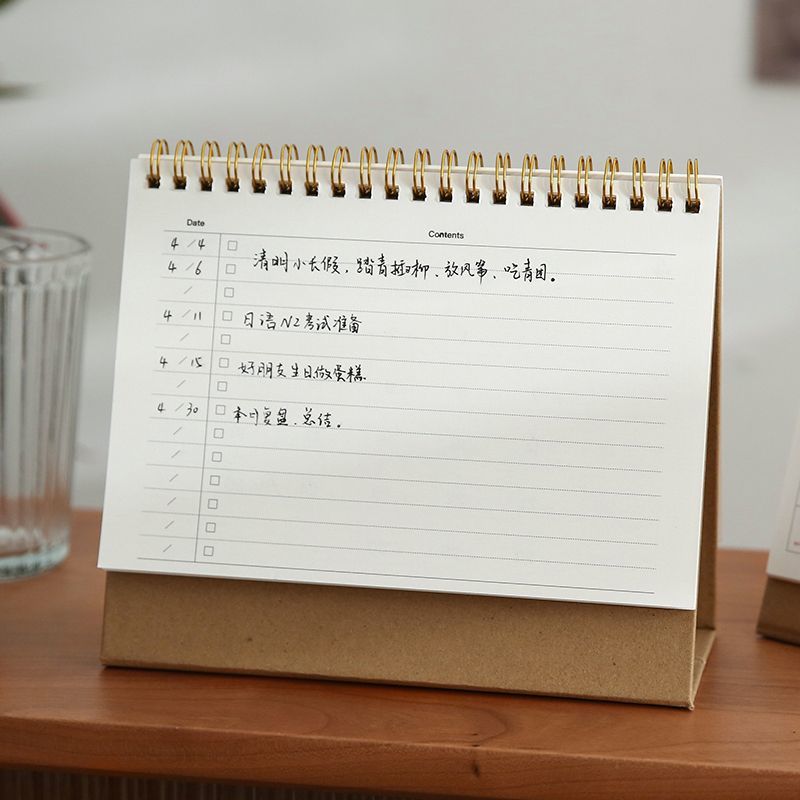 Date Contents
4/4
4/6 清明小长假，踏青插柳、放风筝、吃青团。
/
4/11 日语N2考试准备
/
4/15 好朋友生日做蛋糕
/
4/30 本月复盘、总结。
/
/
/
/
/
/